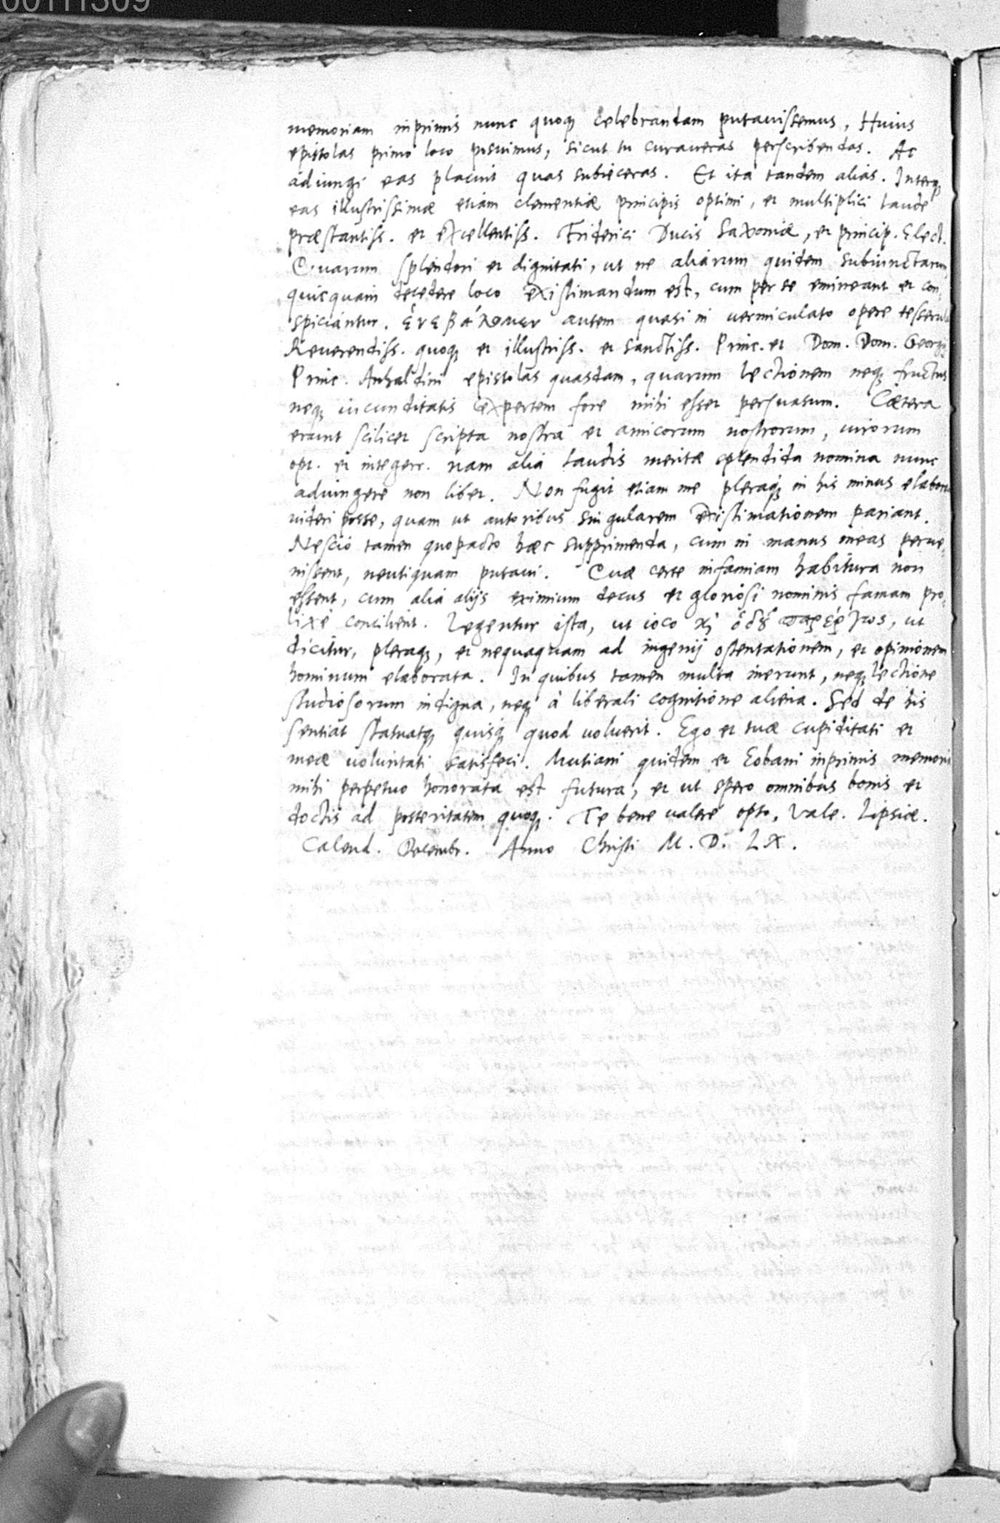 00111309
memoriam inprimis nunc quoq; celebrandam putavissemus, Huius
epistolas primo loco posuimus, sicut tu curaveras perscribendas. Ac
adiungi eas placuit quas subieceras. Et ita tandem alias. Interq;
eas illustrissimæ etiam clementiæ principis optimi, et multiplici laude
præstantiss. et excellentiss. Friderici Ducis Saxoniæ, et princip. Elect.
Quarum splendori et dignitati, ut ne aliarum quidem subiunctarum
quicquam decedere loco existimandum est, cum per se emineant et con
spiciantur. ἐνεβάλομεν autem quasi in vermiculato opere
Reverendiss. quoq; et illustriss. et sanctiss. Princ. et Dom. Dom. Georgij
Princ. Anhaldini epistolas quasdam, quarum lectionem neq; fructus
neq; iucunditatis expertem fore mihi esset persuasum. Cætera
erunt scilicet scripta nostra et amicorum nostrorum, virorum
opt. et integerr. nam alia laudis meritæ splendida nomina nunc
adiungere non libet. Non fugit etiam me pleraq; in his minus elabora
videri posse, quam ut autoribus singularem existimationem pariant.
Nescio tamen quo pacto hæc supprimenda, cum in manus meas perve,
nissent, neutiquam putavi. Quæ certe infamiam habitura non
essent, cum alia alijs eximium decus et gloriosi nominis famam pro,
lixè concilient. Legentur ista, ut ioco καὶ ὁδοῦ παρέργως, ut
dicitur, pleraq;, et nequaquam ad ingenij ostentationem, et opinionem
hominum elaborata. In quibus tamen multa inerunt, neq; lectione
studiosorum indigna, neq; à liberali cognitione aliena. Sed de his
sentiat statuatq; quisq; quod voluerit. Ego et tuæ cupiditati et
meæ voluntati satisfeci. Mutiani quidem et Eobani inprimis memoria
mihi perpetuo honorata est futura, et ut spero omnibus bonis et
doctis ad posteritatem quoq;. Te bene valere opto, Vale. Lipsiæ.
Calend. Decembr. Anno Christi M. D. LX.